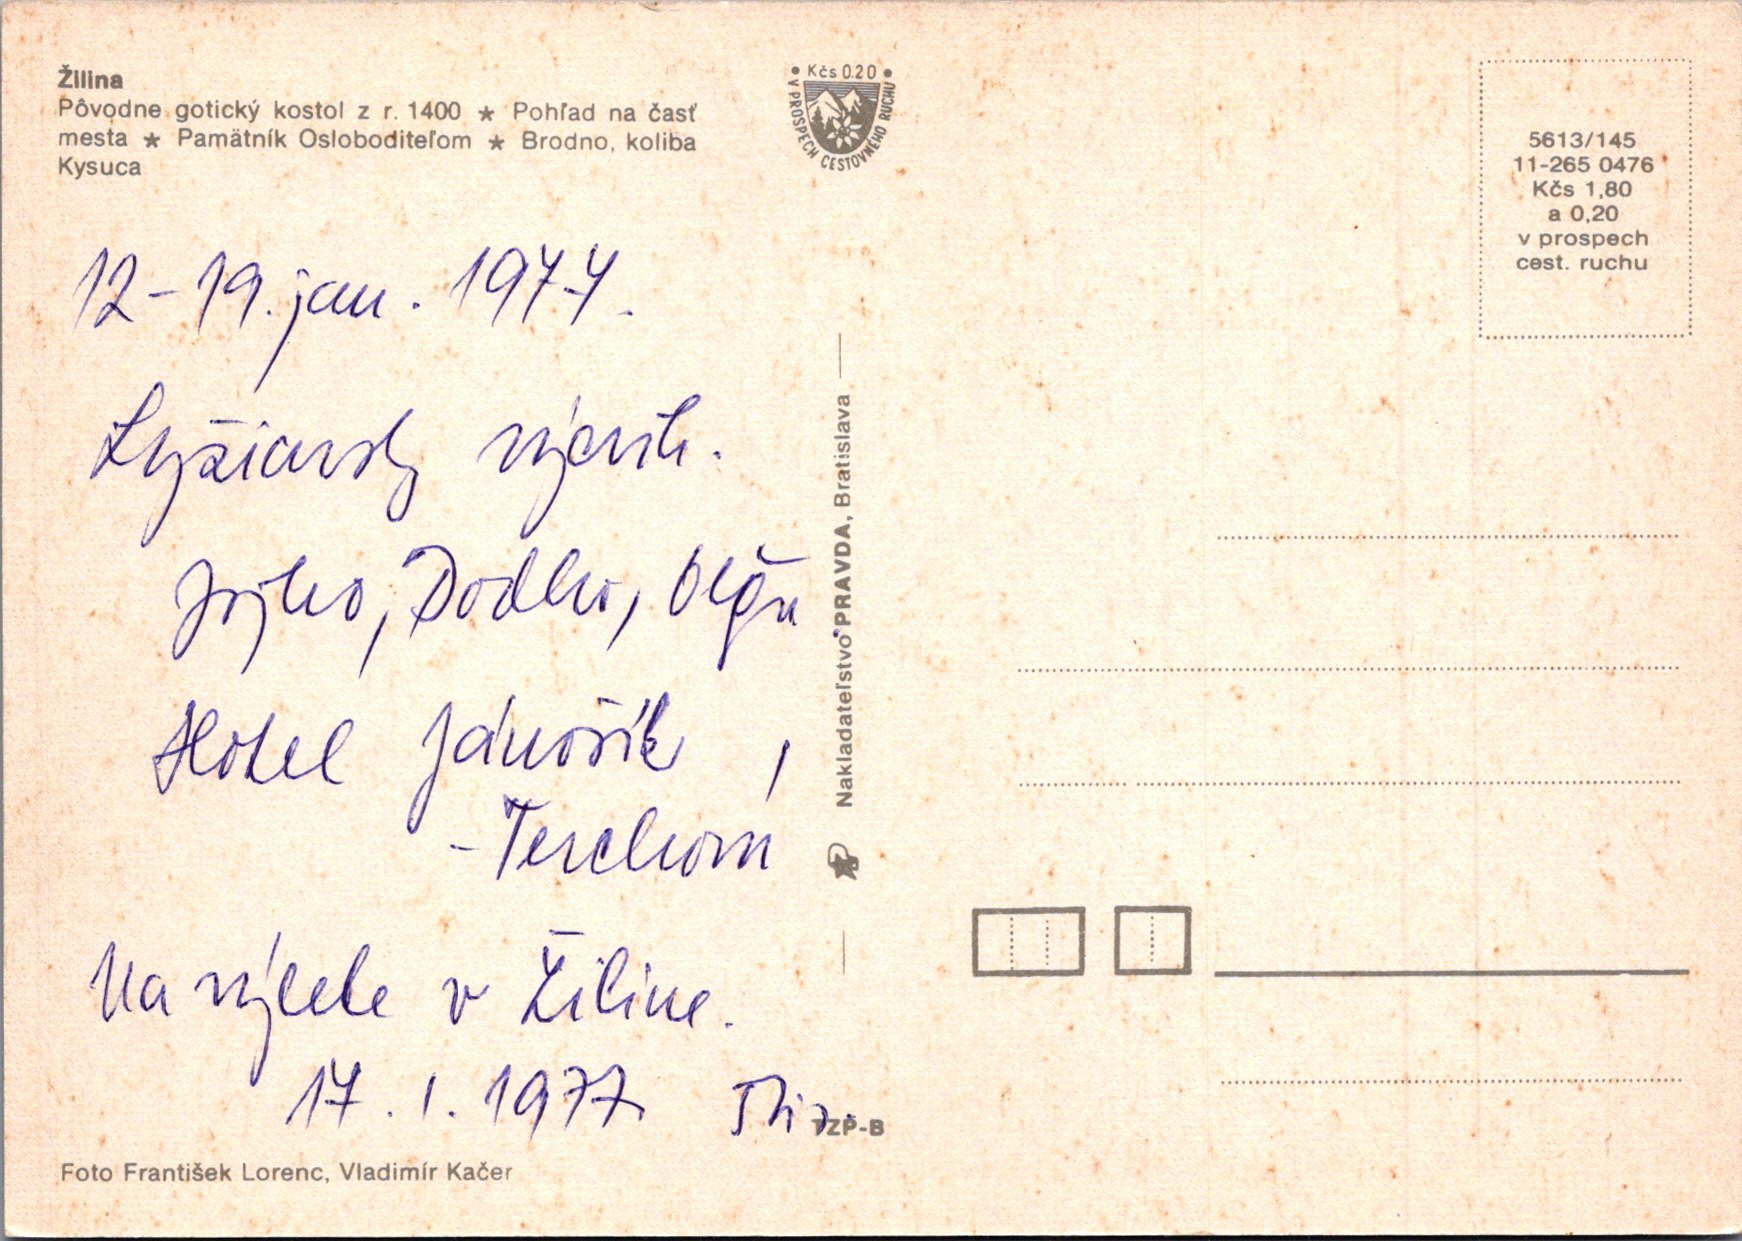 Žilina
Pôvodne gotický kostol z r. 1400 ★ Pohľad na časť
mesta ★ Pamätník Osloboditeľom ★ Brodno, koliba
Kysuca
• Kčs 0.20 •
V PROSPECH CESTOVNÉHO RUCHU
5613/145
11-265 0476
Kčs 1,80
a 0,20
v prospech
cest. ruchu
12-19. jan. 1977.
Lyžiarsky výcvik.
Dodko, Oľga
Hotel Jánošík,
- Terchová
Na výlete v Žiline.
17. 1. 1977
Nakladateľstvo PRAVDA, Bratislava
TZP-B
Foto František Lorenc, Vladimír Kačer